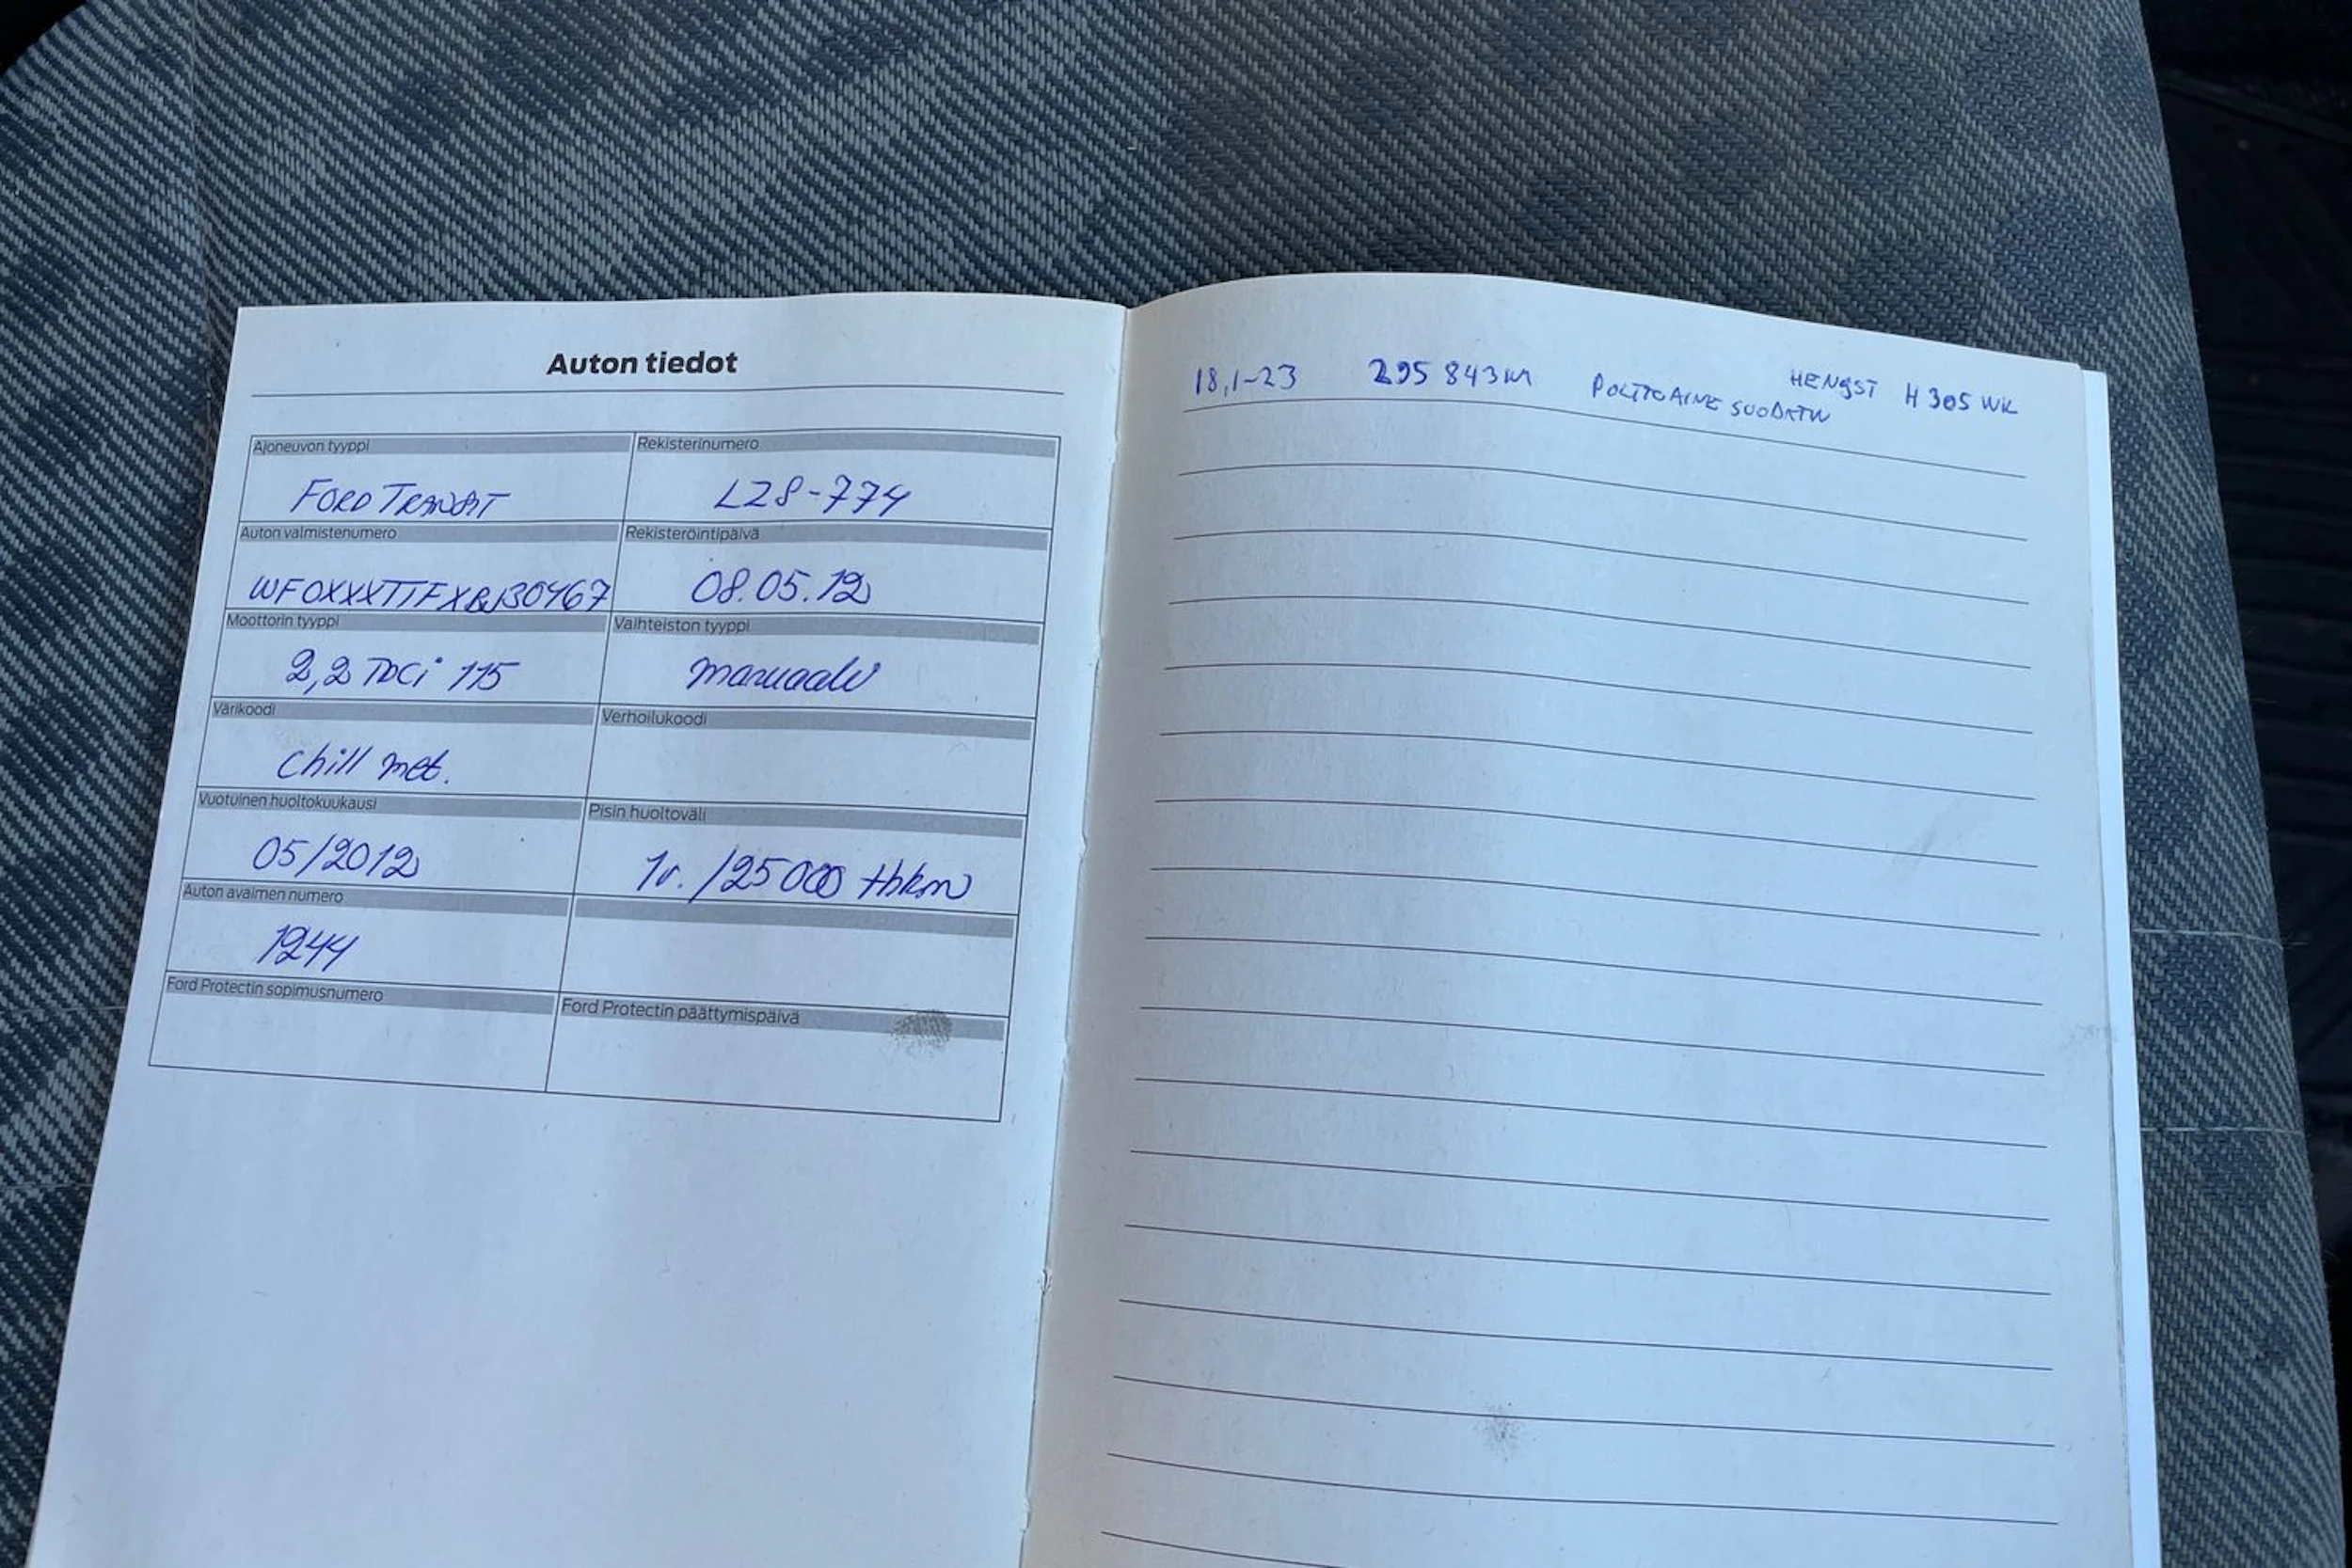 Auton tiedot
Ajoneuvon tyyppi
FORD TRANSIT
Rekisterinumero
LZS-774
Auton valmistenumero
WF0XXXTTFXBJ30467
Rekisteröintipäivä
08.05.12
Moottorin tyyppi
2,2 TDCi 115
Vaihteiston tyyppi
manuaali
Värikoodi
Chill met.
Verhoilukoodi
Vuotuinen huoltokuukausi
05/2012
Pisin huoltoväli
1v. /25 000 thkm
Auton avaimen numero
1244
Ford Protectin sopimusnumero
Ford Protectin päättymispäivä
18,1-23 295 843 KM POLTTOAINE SUODATIN HENGST H 305 WK